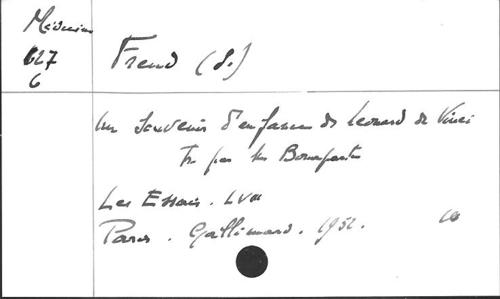 Médecine
627
6
Freud (S.)
Un Souvenir d'enfance de Léonard de Vinci
Tr par Bonaparte
Les Essais. LVIII
Paris. Gallimard. 1952.